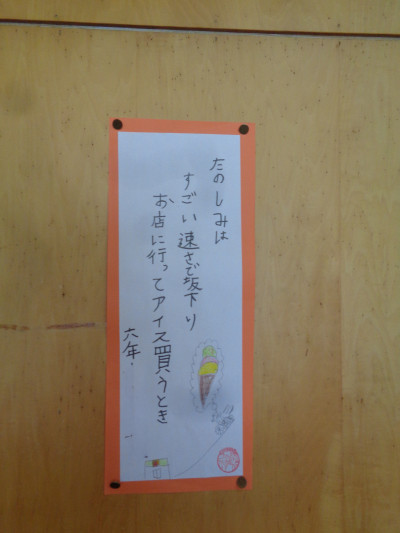 たのしみは
すごい速さで坂下り
お店に行ってアイス買うとき
六年.